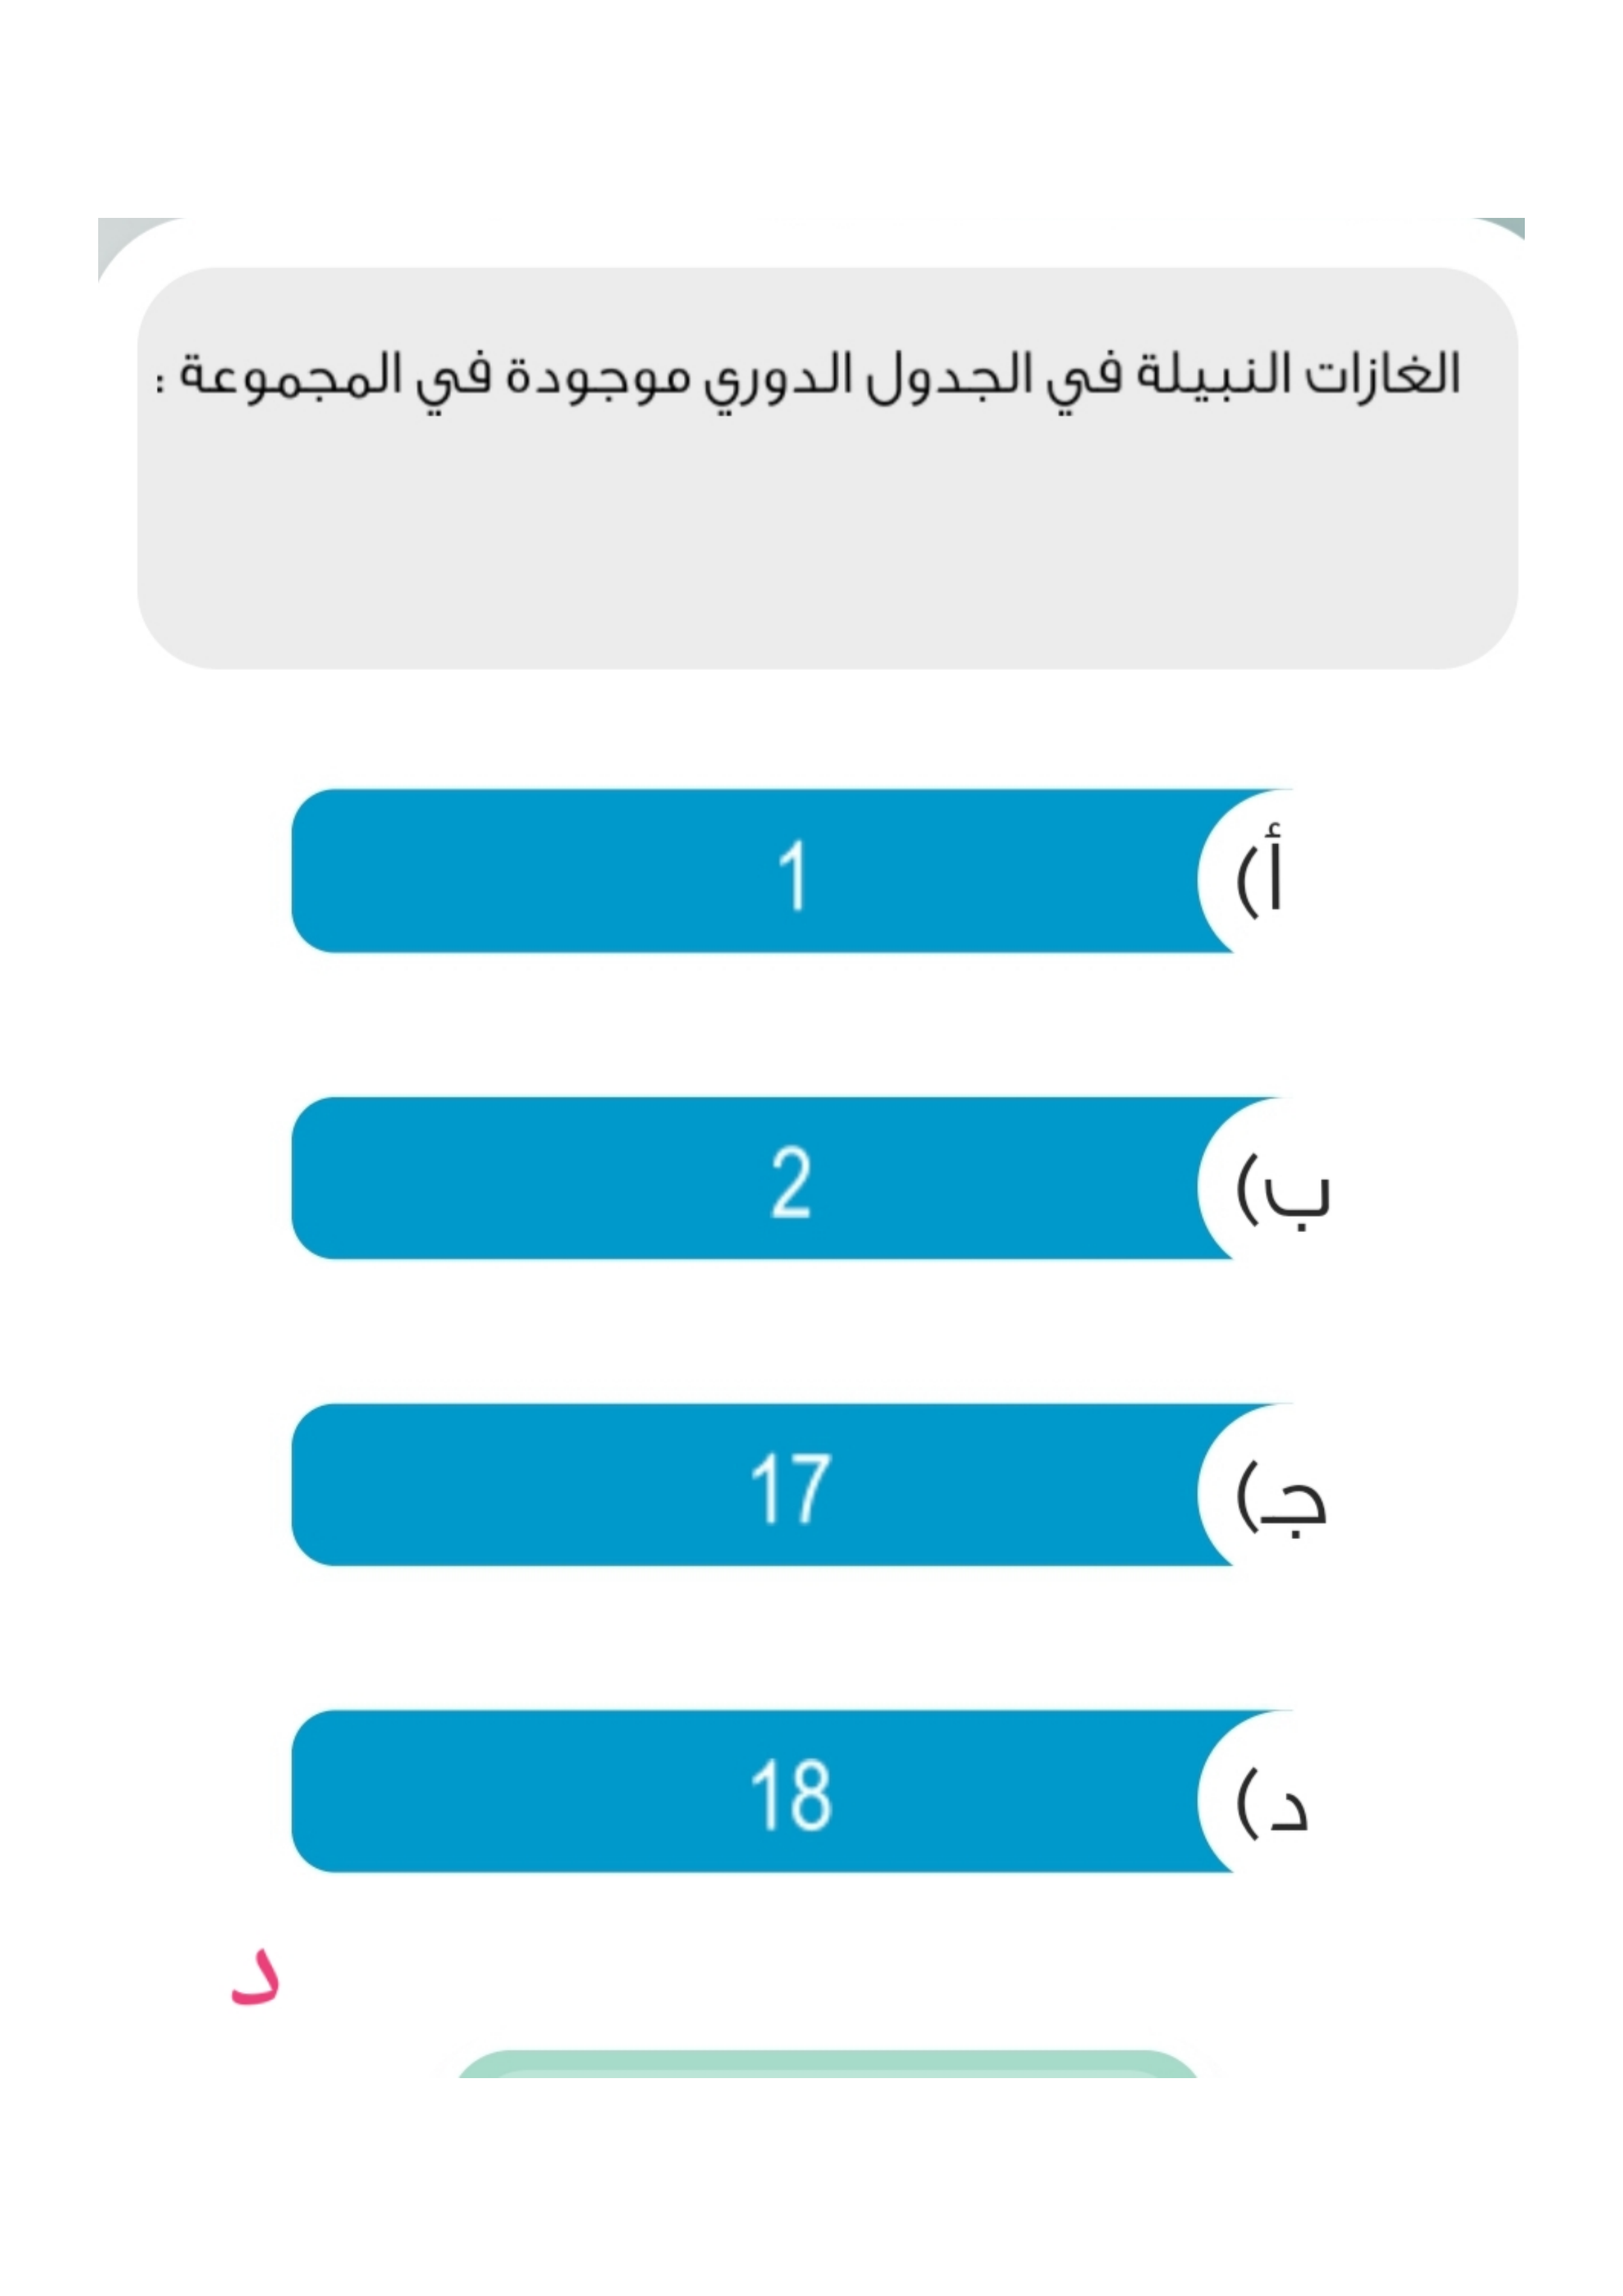 الغازات النبيلة في الجدول الدوري موجودة في المجموعة :
أ) 1
ب) 2
ج) 17
د) 18
د